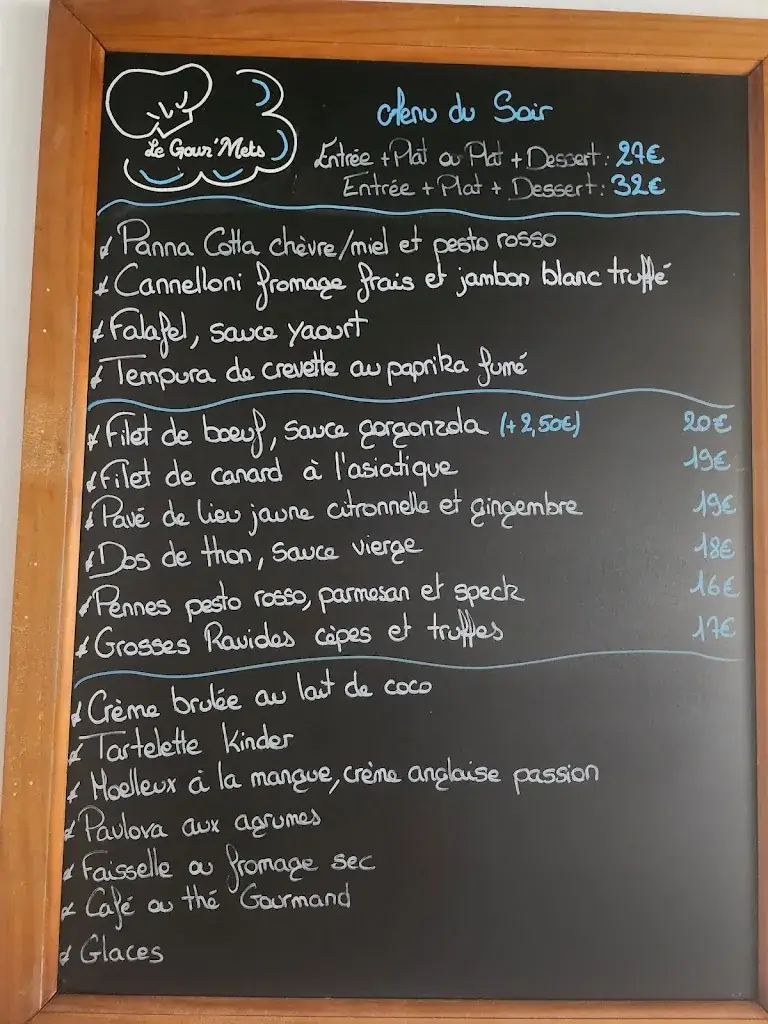 Le Gour'Mets
Menu du Soir
Entrée + Plat ou Plat + Dessert : 27€
Entrée + Plat + Dessert : 32€
Panna Cotta chèvre/miel et pesto rosso
Cannelloni fromage frais et jambon blanc truffé
Falafel, sauce yaourt
Tempura de crevette au paprika fumé
Filet de boeuf, sauce gorgonzola (+2,50€) 20€
Filet de canard à l'asiatique 19€
Pavé de lieu jaune citronnelle et gingembre 19€
Dos de thon, sauce vierge 18€
Pennes pesto rosso, parmesan et speck 16€
Grosses Ravioles cèpes et truffes 17€
Crème brulée au lait de coco
Tartelette Kinder
Moelleux à la mangue, crème anglaise passion
Pavlova aux agrumes
Faisselle ou fromage sec
Café ou thé Gourmand
Glaces